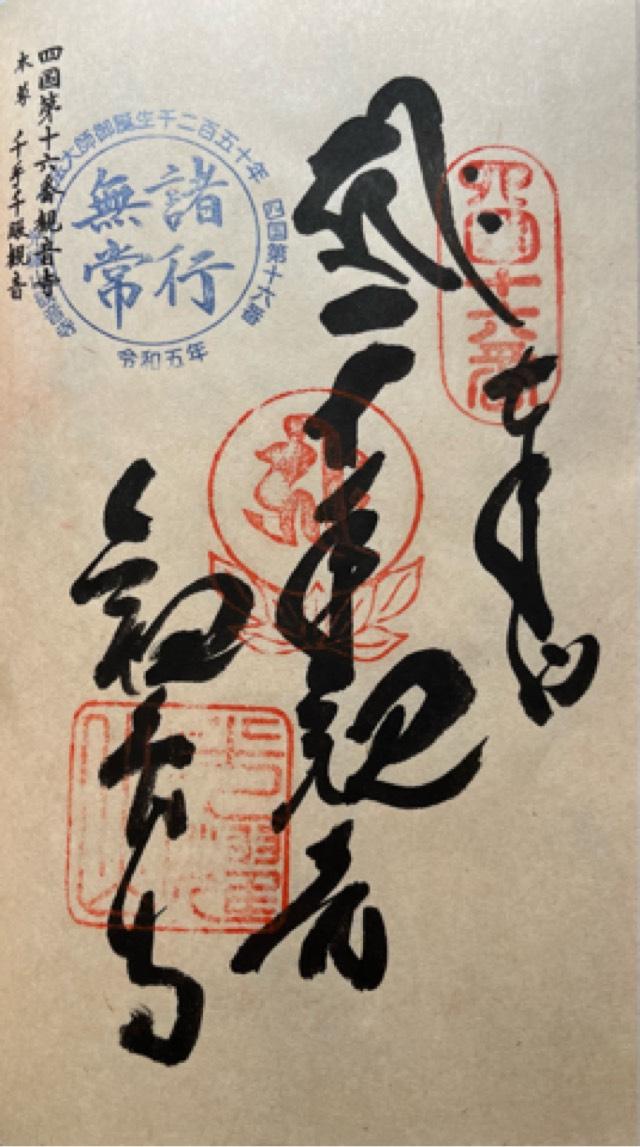 四国十六番
千手観音
観音寺
光耀山
大師御誕生千二百五十年
四国第十六番
諸行
無常
令和五年
四国第十六番観音寺
本尊 千手千眼観音